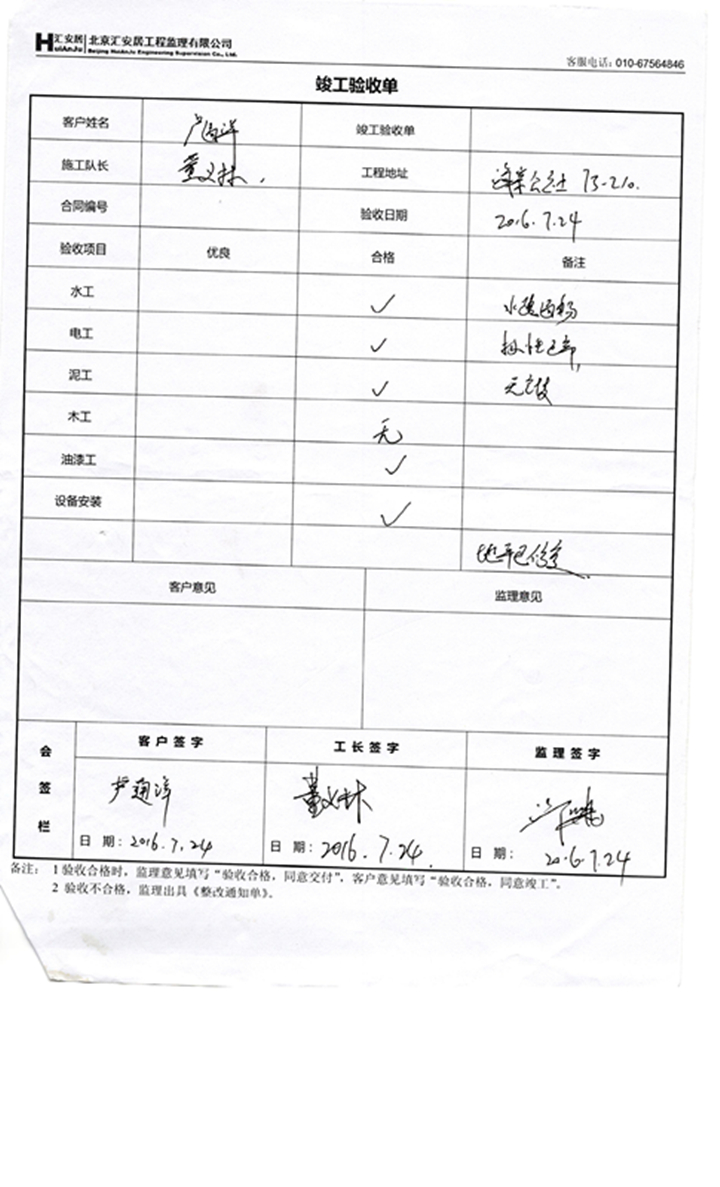 汇安居 北京汇安居工程监理有限公司
HuiAnJu Beijing HuiAnJu Engineering Supervision Co., Ltd.
客服电话: 010-67564846
竣工验收单
客户姓名 竣工验收单
施工队长 董义林 工程地址 13-210.
合同编号 验收日期 2016.7.24
验收项目 优良 合格 备注
水工 ✓
电工 ✓
泥工 ✓
木工 无
油漆工 ✓
设备安装 ✓
客户意见 监理意见
会签栏 客户签字 工长签字 监理签字
董义林
日 期: 2016.7.24 日 期: 2016.7.24 日 期: 2016.7.24
备注: 1 验收合格时，监理意见填写“验收合格，同意交付”，客户意见填写“验收合格，同意竣工”。
2 验收不合格，监理出具《整改通知单》。